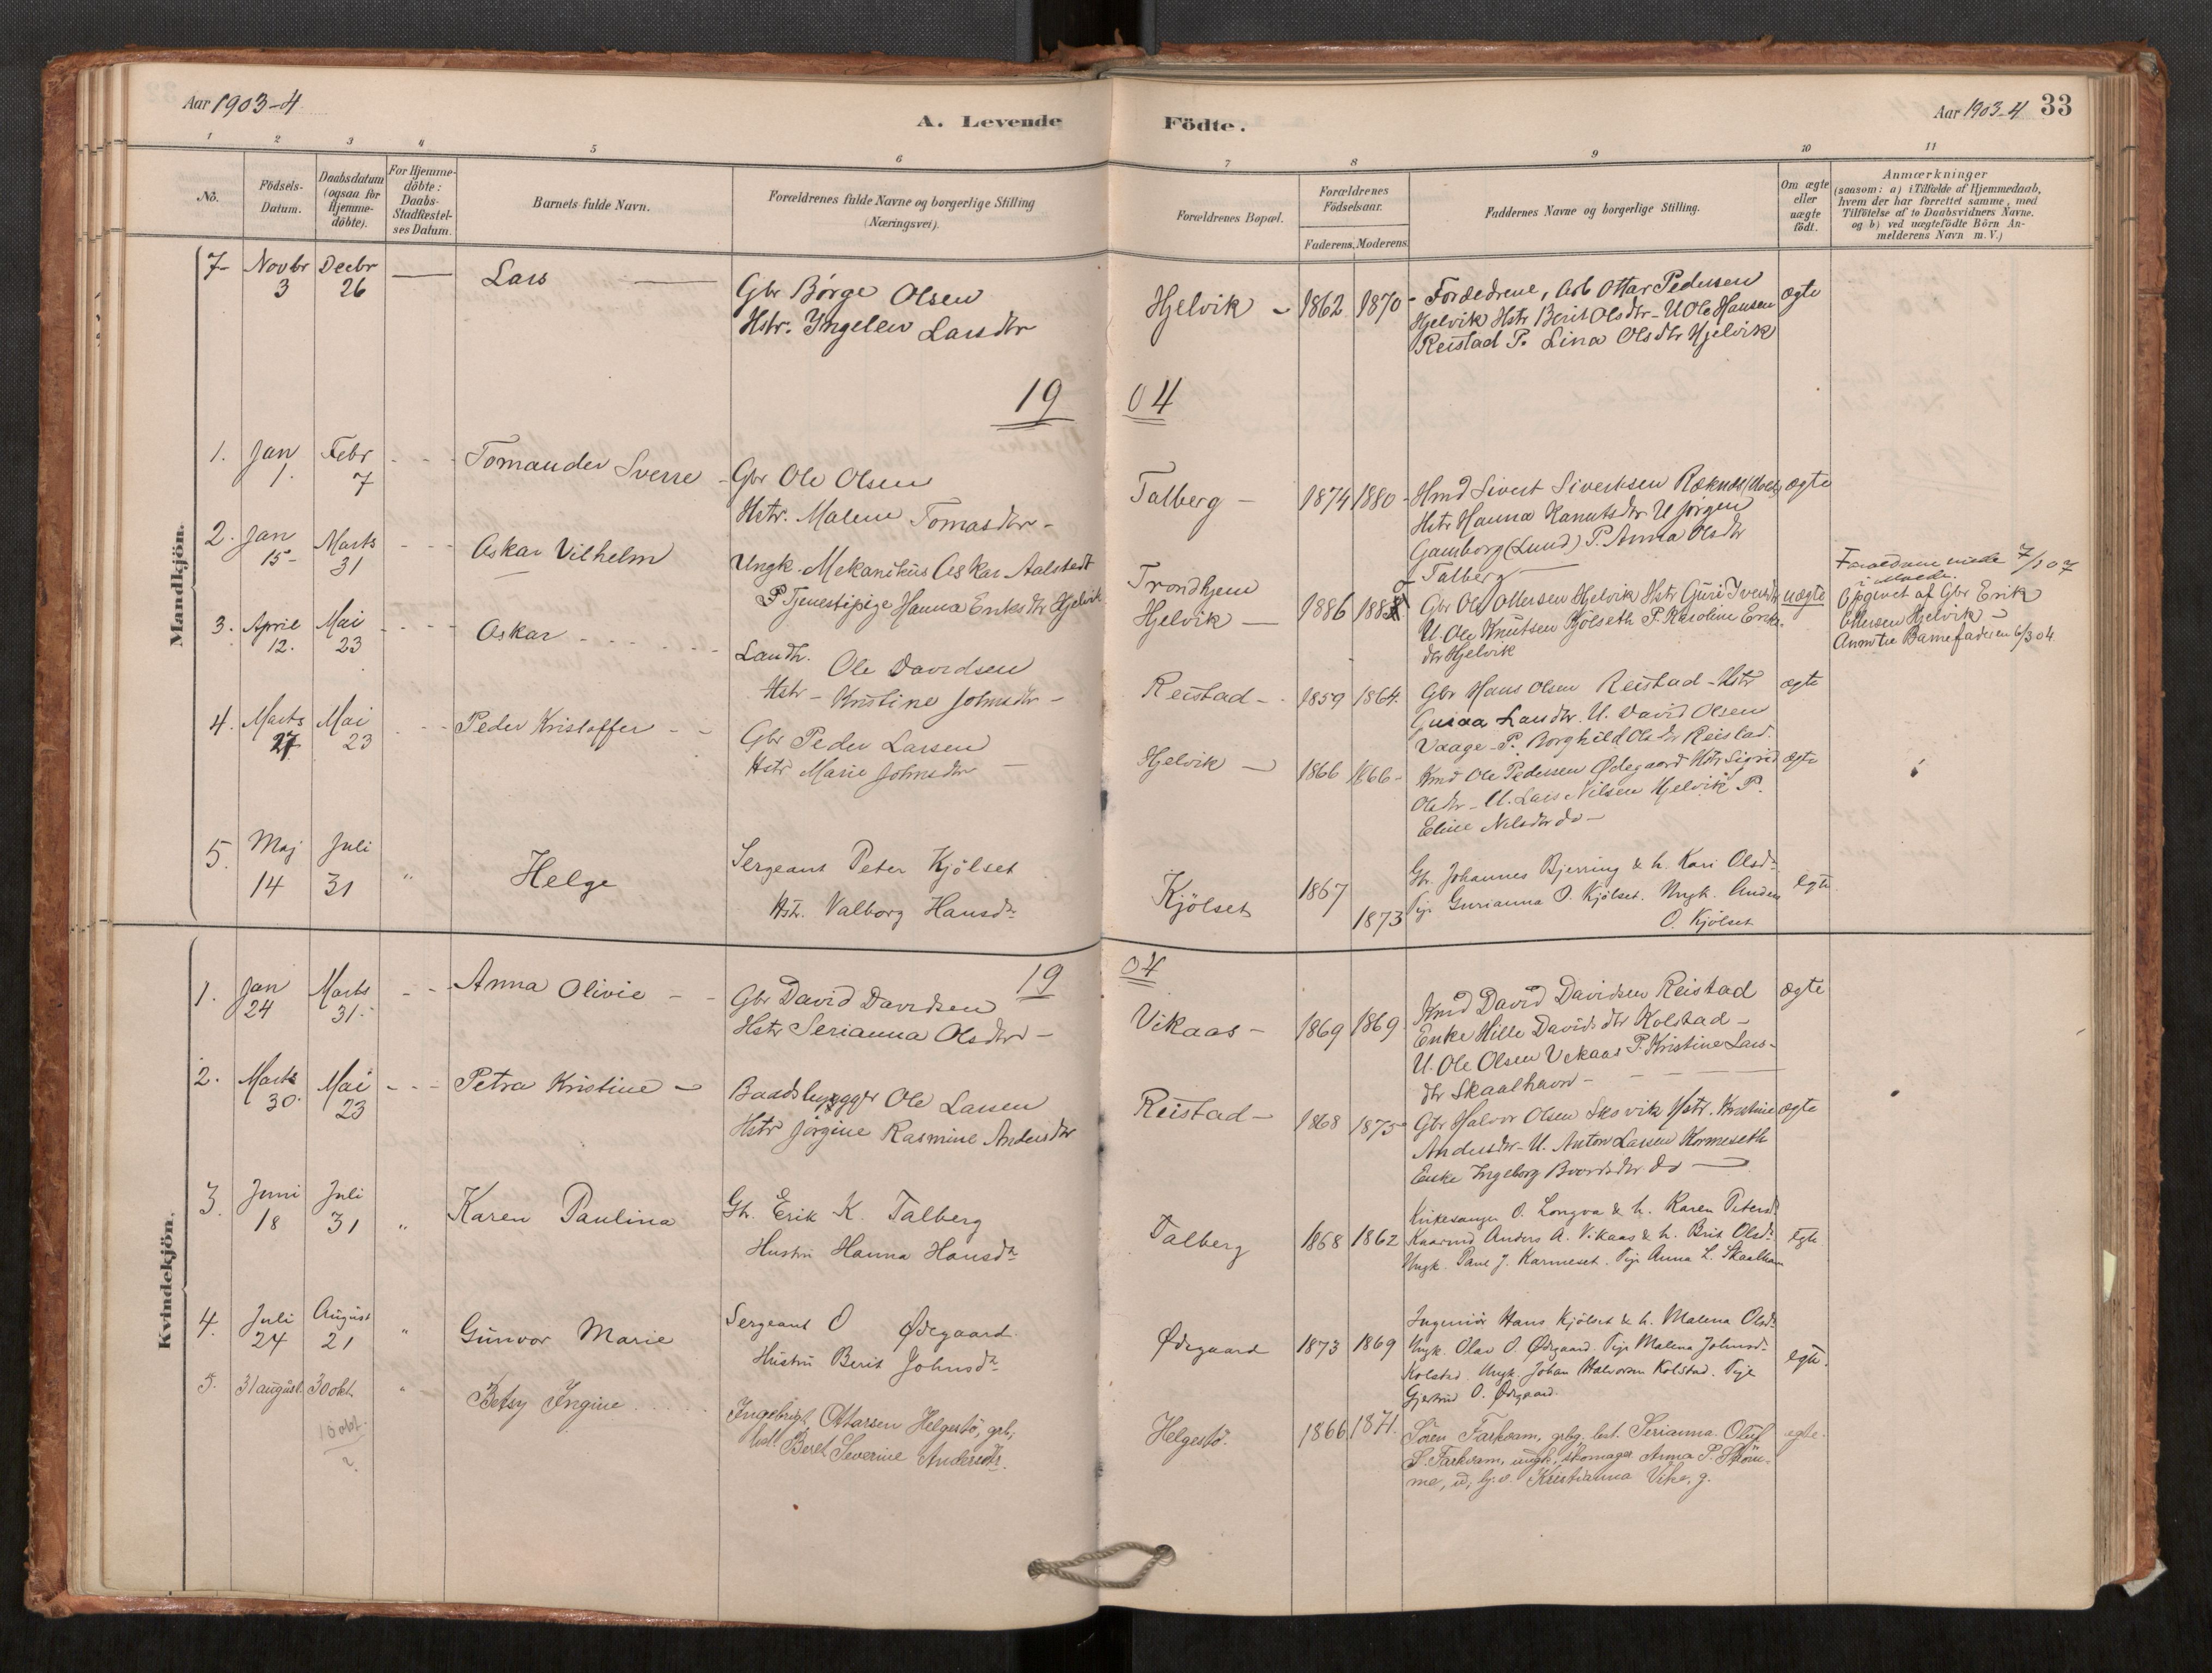 Aar 1903-4
A. Levende
Födte.
Aar 1903-4 33
1 2 3 4 5 6 7 8 9 10 11
No.
Födsels-
Datum.
Daabsdatum
(ogsaa for
Hjemme-
döbte).
For Hjemme-
döbte:
Daabs-
Stadfæstel-
ses Datum.
Barnets fulde Navn.
Forældrenes fulde Navne og borgerlige Stilling
(Næringsvei).
Forældrenes Bopæl.
Forældrenes
Födselsaar.
Faderens. Moderens.
Faddernes Navne og borgerlige Stilling.
Om ægte
eller
uægte
födt.
Anmærkninger
(saasom: a) i Tilfælde af Hjemmedaab,
hvem der har forrettet samme, med
Tilföielse af to Daabsvidners Navne.
og b) ved uægtefödte Börn An-
melderens Navn m.V.)
Mandkjön.
7- Novbr Decbr — Lars —
3 26
Gbr Børge Olsen
Hstr. Ingelev Larsdtr
Hjelvik - 1862 1870
- Forældrene, Arb Ottar Pedersen
Hjelvik Hstr Berit Olsdtr - U Ole Hansen
Reistad P. Lina Olsdtr Hjelvik
ægte
19 04
1. Jan Febr - - - Tomander Sverre
1. 7
- Gbr Ole Olsen
Hstr. Malene Tomasdtr -
Talberg - 1874 1880
- Hmd Sivert Sivertsen Røknes
Hstr Hanna Kanutsdtr U Jørgen
Gamborg (Lund) P. Anna Olsdtr
Talberg
ægte
2. Jan Marts - - - Askar Vilhelm
15- 31
Ungk. Mekanikus Askar Aalstedt
P Tjenestepige Hanna Eriksdtr Hjelvik
Trondhjem
Hjelvik — 1886 188
Gbr Ole Ottersen Hjelvik Hstr Guri Iversdtr
U. Ole Knutsen Kjölseth P. Karoline Eriks-
dtr Hjelvik
uægte
Forældrene viede 7/10 7
i Molde.
Opgivet af Gbr Erik
Ottersen Hjelvik -
Anm til Barnefaderen 6/3 04
3. April Mai - - - - Askar - - - - - -
12. 23
Landh. Ole Davidsen
Hstr - Kristine Johnsdtr -
Reistad - - 1859 1864.
Gbr Hans Olsen Reistad - Hstr
Larsdtr. U. David Olsen
Vaage - P. Borghild Olsdtr Reistad.
ægte
4. Marts Mai - - - Peder Kristoffer - -
27 23
Gbr Peder Larsen
Hstr Marie Johnsdtr —
Hjelvik — 1866 1866-
Kmd Ole Pedersen Ødegaard Hstr Sigrid
Olsdtr - U. Lars Nilsen Hjelvik P.
Eline Nelsdtr do -
ægte
5. Maj Juli " Helge
14 31
Sergeant Peter Kjölset
Hstr. Valborg Hansdr
Kjölset 1867 1873
Gb. Johannes Bjerring & h. Kari Olsdr
Pige Gurianna O. Kjölset. Ungk. Anders
O. Kjölset
egte.
Kvindekjön.
19 04
1. Jan Marts - - Anna Olivie - -
24 31.-
Gbr David Davidsen
Hstr Serianna Olsdtr -
Vikaas - 1869 1869
Kmd David Davidsen Reistad
Enke Hille Davidsdtr Kolstad -
U. Ole Olsen Vikaas P. Kristine Lars-
dtr Skaalhavn - - - - -
ægte
2. Marts Mai - - - Petra Kristine -
30. 23
Baadsbygger Ole Larsen
Hstr Jørgine Rasmine Andersdtr
Reistad - 1868 1875
Gbr Halvor Olsen Skovik Hstr. Kristine
Andersdtr - U. Anton Larsen Kormeseth
Enke Ingeborg Baardsdtr do —
ægte
3. Juni Juli " Karen Paulina
18 31
Gb. Erik K. Talberg
Hustru Hanna Hansdr
Talberg 1868 1862
Kirkesanger O. Longva & h. Karen Petersd
Kaarmd Anders A. Vikaas & h. Brit Olsdr
Ungk. Paul J. Karmeset. Pige Anna L. Skaalhavn
egte
4. Juli August " Gunvor Marie
24 21
Sergeant O Ødegaard.
Hustru Berit Johnsdr
Ødegaard 1873 1869
Ingeniör Hans Kjölset & h. Malena Olsdr
Ungk. Olav O. Ødegaard. Pige Malena Johnsdr
Kolstad. Ungk. Johan Halvorsen Kolstad. Pige
Gjertrud O. Ødegaard.
egte.
5. 31 august. 30 okt. " Betsy Ingine . . . . .
16 okt.
?
Ingebrigt Ottarsen Helgestö, grb,
hst. Beret Severine Andersdtr.
Helgestö. 1866. 1871.
Sören Farkvam, grbg. hst. Serianna. Oluf
S. Farkvam, ungk., skomager Anna P. Ström-
me, Kristianna Vike, g.
egte.